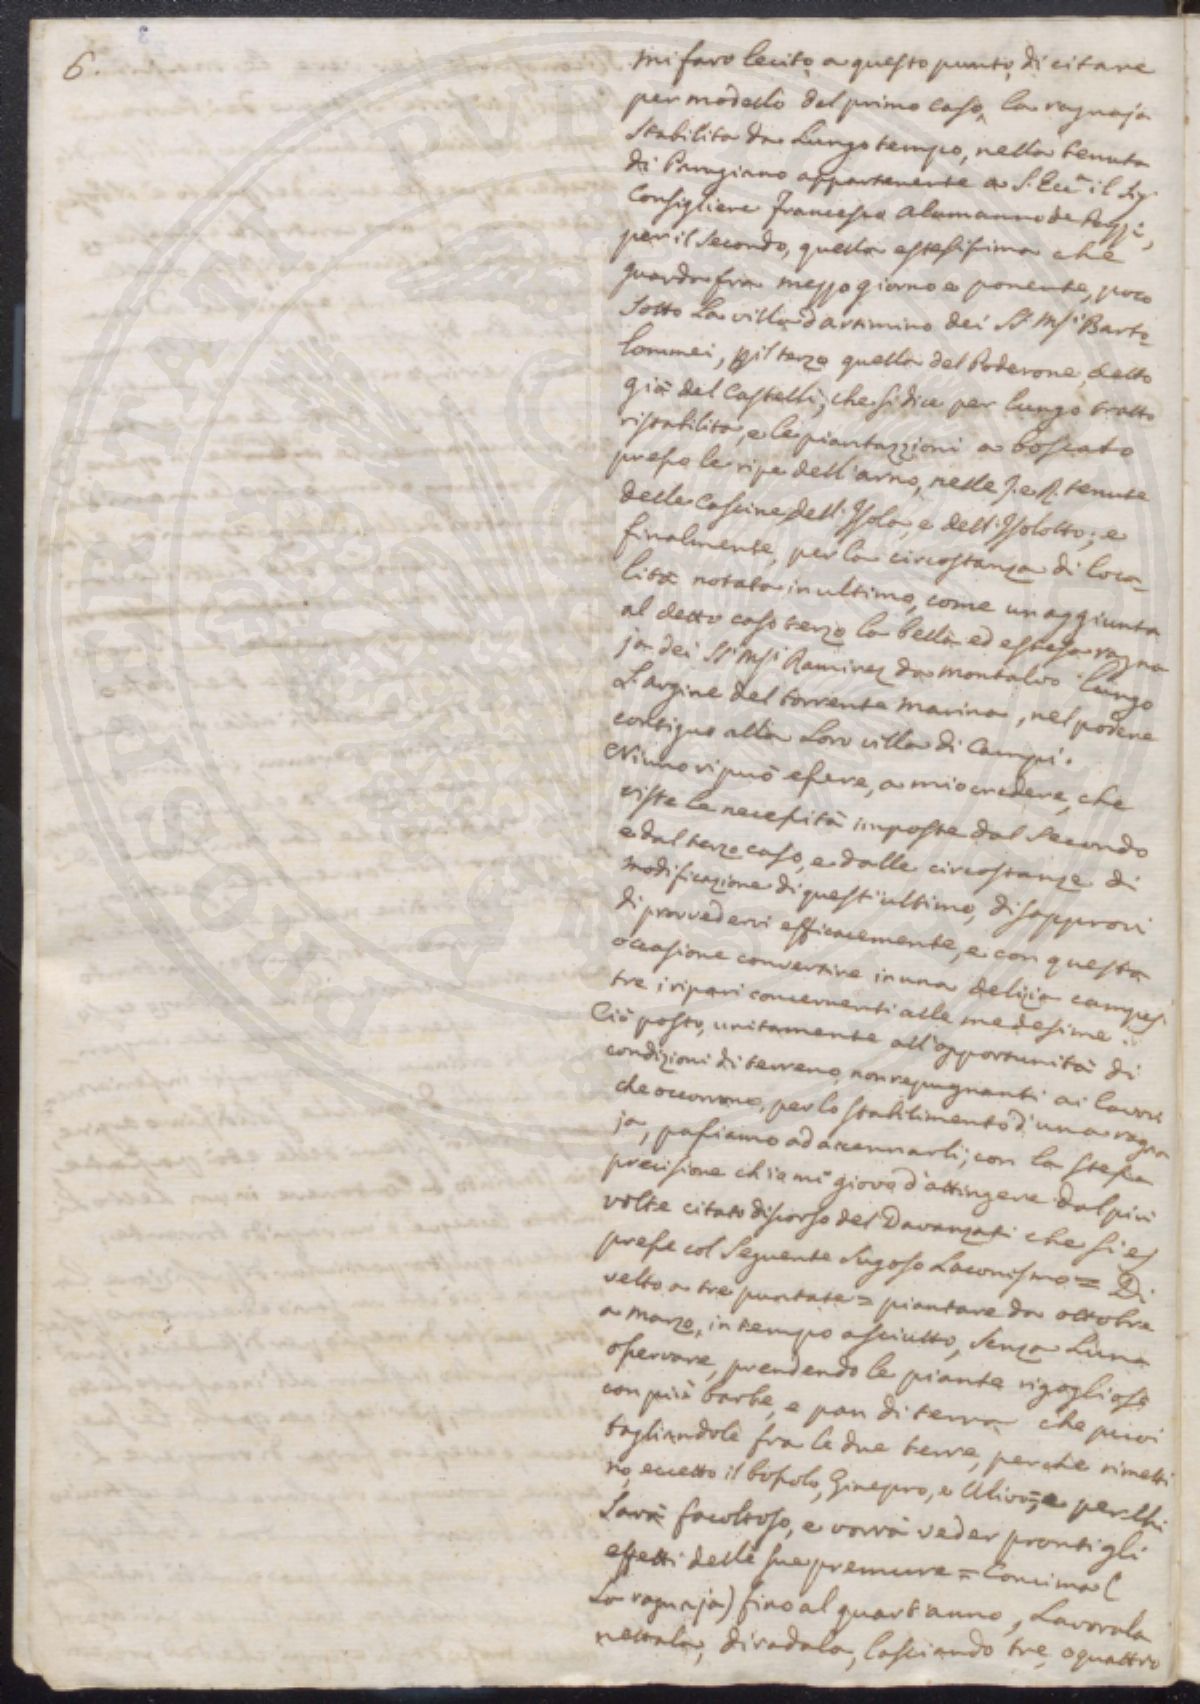 6.
mi farò lecito, a questo punto, di citare
per modello del primo caso, la ragnaja
Stabilita da Lungo tempo, nella tenuta
di Parugiano appartenente a S. Ecc.ª il Sig.
Consigliere Francesco Alamanno de Pazzi,
per il Secondo, quella estesissima che
guarda fra mezzo giorno e ponente, poco
Sotto La villa d'artimino dei SS. Msi Barto-
lommei, p il terzo quella del Poderone, detto
già del Castelli, che si dice per lungo tratto
ristabilita, e le piantazzioni a boscato
presso le ripe dell'arno, nelle I. e R. tenute
delle Cascine, dell'Isola, e dell'Isolotto; e
finalmente, per la circostanza di loca-
lità notata in ultimo, come un aggiunta
al detto caso terzo la bella ed estesa ragna
ja dei SS. Msi Ramirez da Montalvo lungo
L'argine del torrente Marina, nel podere
contiguo alla Loro villa di Campi.
Niuno vi può essere, a mio credere, che
viste le necessità imposte dal Secondo
e dal terzo caso, e dalle circostanze di
modificazione di quest'ultimo, disapprovi
di provvedervi efficacemente, e con questa
occasione convertire in una delizia campes
tre i ripari concernenti alle medesime.
Ciò posto, unitamente all'opportunità di
condizioni di terreno, non repugnanti ai lavori
che occorrono, per lo stabilimento d'una ragna
ja, passiamo ad accennarli; con la stessa
precisione ch'ie mi giova d'attingere dal più
volte citato discorso del Davanzati che si es
presse col Seguente Sugoso Laconismo = Di
velto a tre puntate = piantare da ottobre
a Marzo, in tempo asciutto, Senza Luna
osservare, prendendo le piante rigogliose
con più barbe, e pan di terra che puoi
tagliandole fra le due terre, perche rimetti
no, eccetto il bossolo, Ginepro, e Ulivo =, e per chi
Sarà facoltoso, e vorrà veder pronti gli
effetti delle sue premure = Concima (
La ragnaja) fino al quart'anno, Lavorala
nettala, diradala, lasciando tre, o quattro